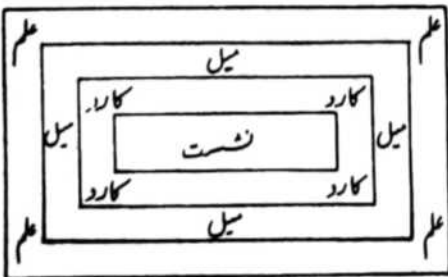 علم علم
میل
کارد کارد
میل نشست میل
کارد کارد
میل
علم علم